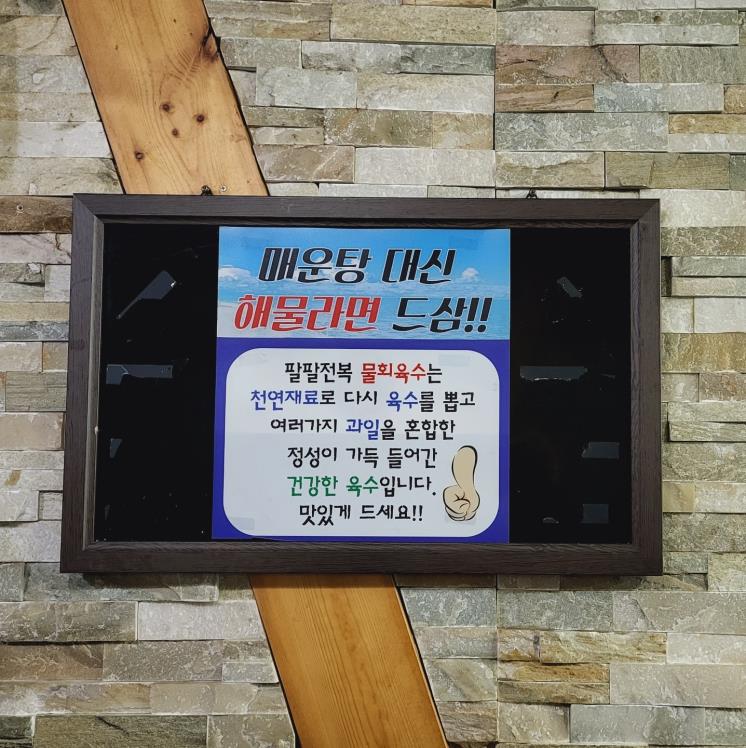 매운탕 대신
해물라면 드삼!!
팔팔전복 물회육수는
천연재료로 다시 육수를 뽑고
여러가지 과일을 혼합한
정성이 가득 들어간
건강한 육수입니다.
맛있게 드세요!!